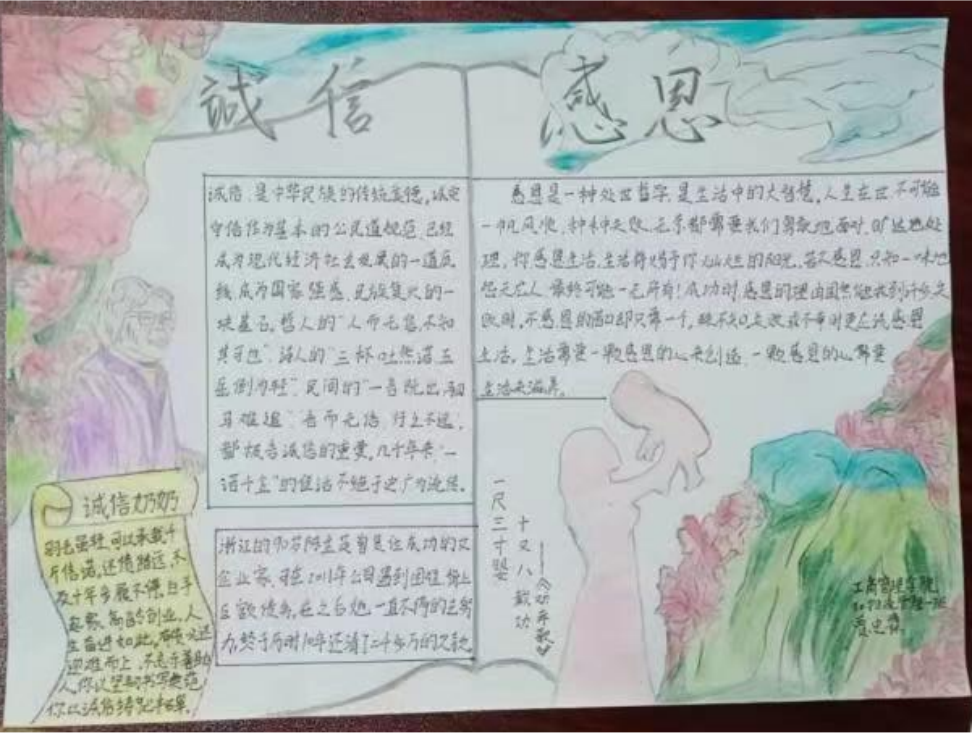 誠信
感恩
诚信,是中华民族的传统美德,诚实
守信作为基本的公民道德规范,已经
成为现代经济社会发展的一道底
线,成为国家强盛、民族复兴的一
块基石。哲人的“人而无信,不知
其可也”,诗人的“三杯吐然诺,五
岳倒为轻”,民间的“一言既出,驷
马难追”,言而无信,行之不远,
都极言诚信的重要,几千年来,“一
诺千金”的佳话不绝于史,广为流传。
浙江的90岁陈金英曾是位成功的女
企业家,可在2011年公司遇到困难,背上
巨额债务,在之后她一直不停的去努
力,终于历时10年还清了二千多万的欠款
诚信奶奶
千
斤信诺,还债路远,不
及十年步履不停,白手
起家,高龄创业,人
生奋进如此,
迎难而上,不
人,你以坚韧书写
你以诚信
感恩是一种处世哲学,是生活中的大智慧,人生在世,不可能
一帆风顺,种种失败、无奈都需要我们勇敢地面对、旷达地处
理。你感恩生活,生活将赐予你灿烂的阳光,若不感恩,只知一味地
怨天尤人,最终可能一无所有!成功时,感恩的理由固然能找到许多,失
败时,不感恩的借口却只需一个,殊不知,失败或不幸时更应该感恩
生活。生活需要一颗感恩的心来创造,一颗感恩的心需要
生活来滋养。
一尺三寸婴
十又八载功
——《劝孝歌》
工商管理学院